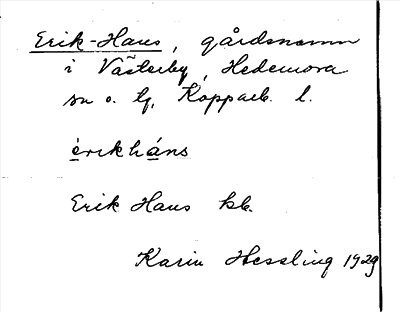 Erik-Hans, gårdsnamn
i Västerby, Hedemora
sn o. tg, Kopparb. l.
èrikháns
Erik Hans kb.
Karin Hessling 1929